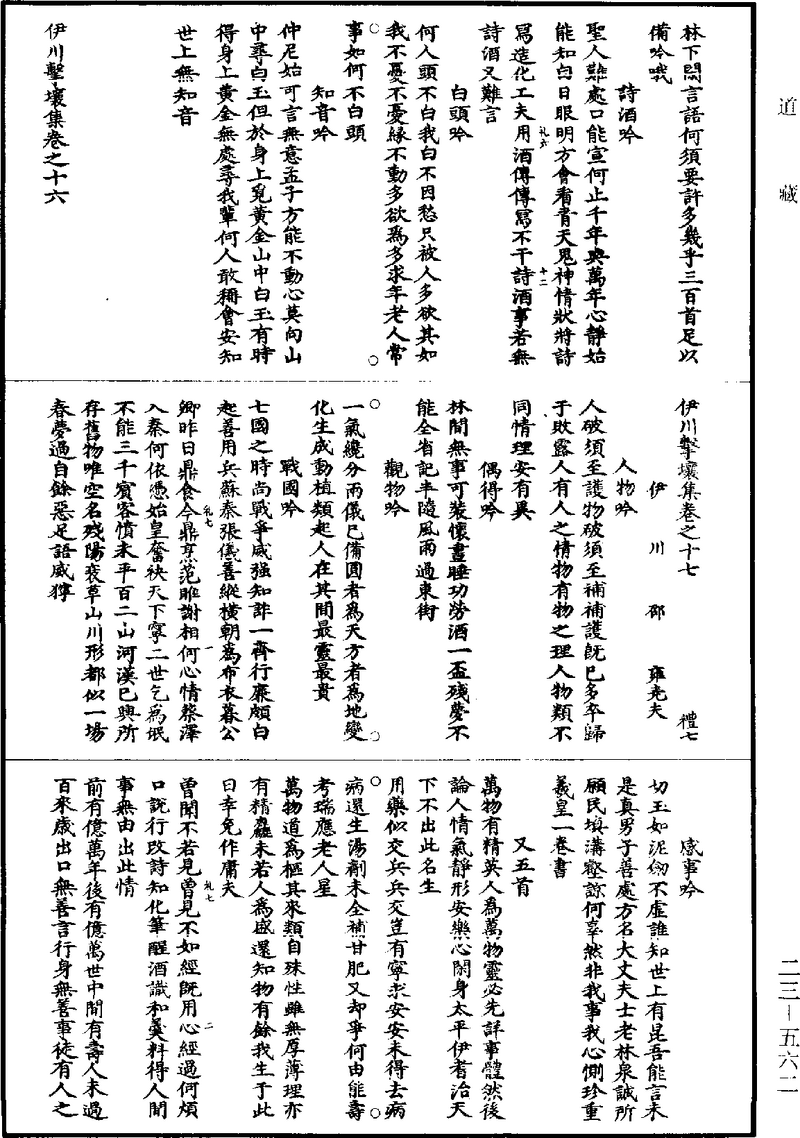 道藏
林下閑言語何須要許多幾乎三百首足以
備吟哦
詩酒吟
聖人難處口能宣何止千年與萬年心靜始
能知白日眼明方會看青天鬼神情狀將詩
寫造化工夫用酒傳傳寫不干詩酒事若無
詩酒又難言
白頭吟
何人頭不白我白不因愁只被人多欲其如
我不憂不憂緣不動多欲爲多求年老人常
事如何不白頭
知音吟
仲尼始可言無意孟子方能不動心莫向山
中尋白玉但於身上覓黃金山中白玉有時
得身上黃金無處尋我輩何人敢稱會安知
世上無知音
伊川擊壤集卷之十六
伊川擊壤集卷之十七 禮七
伊川邵雍堯夫
人物吟
人破須至護物破須至補補護旣已多卒歸
于敗露人有人之情物有物之理人物類不
同情理安有異
偶得吟
林間無事可裝懷晝睡功勞酒一盃殘夢不
能全省記半隨風雨過東街
觀物吟
一氣纔分兩儀已備圓者爲天方者爲地變
化生成動植類起人在其間最靈最貴
戰國吟
七國之時尚戰爭威强知詐一齊行廉頗白
起善用兵蘇秦張儀善縱橫朝爲布衣暮公
卿昨日鼎食今鼎烹范睢謝相何心情蔡澤
入秦何依憑始皇奮袂天下寧二世乞爲氓
不能三千賓客憤未平百二山河漢已興所
存舊物唯空名殘陽衰草山川形都似一場
春夢過自餘惡足語威獰
感事吟
切玉如泥劒不虛誰知世上有昆吾能言未
是眞男子善處方名大丈夫士老林泉誠所
願民塡溝壑諒何辜然非我事我心惻珍重
羲皇一卷書
又五首
萬物有精英人爲萬物靈必先詳事體然後
論人情氣靜形安樂心閑身太平伊耆治天
下不出此名生
用藥似交兵兵交豈有寧求安安未得去病
病還生湯劑未全補甘肥又却爭何由能壽
考瑞應老人星
萬物道爲樞其來類自殊性雖無厚薄理亦
有精麤未若人爲盛還知物有餘我生于此
日幸免作庸夫
曾聞不若見曾見不如經旣用心經過何煩
口說行改詩知化筆醒酒識和羹料得人間
事無由出此情
前有億萬年後有億萬世中間有壽人未過
百來歲出口無善言行身無善事徒有人之
二三—五六二